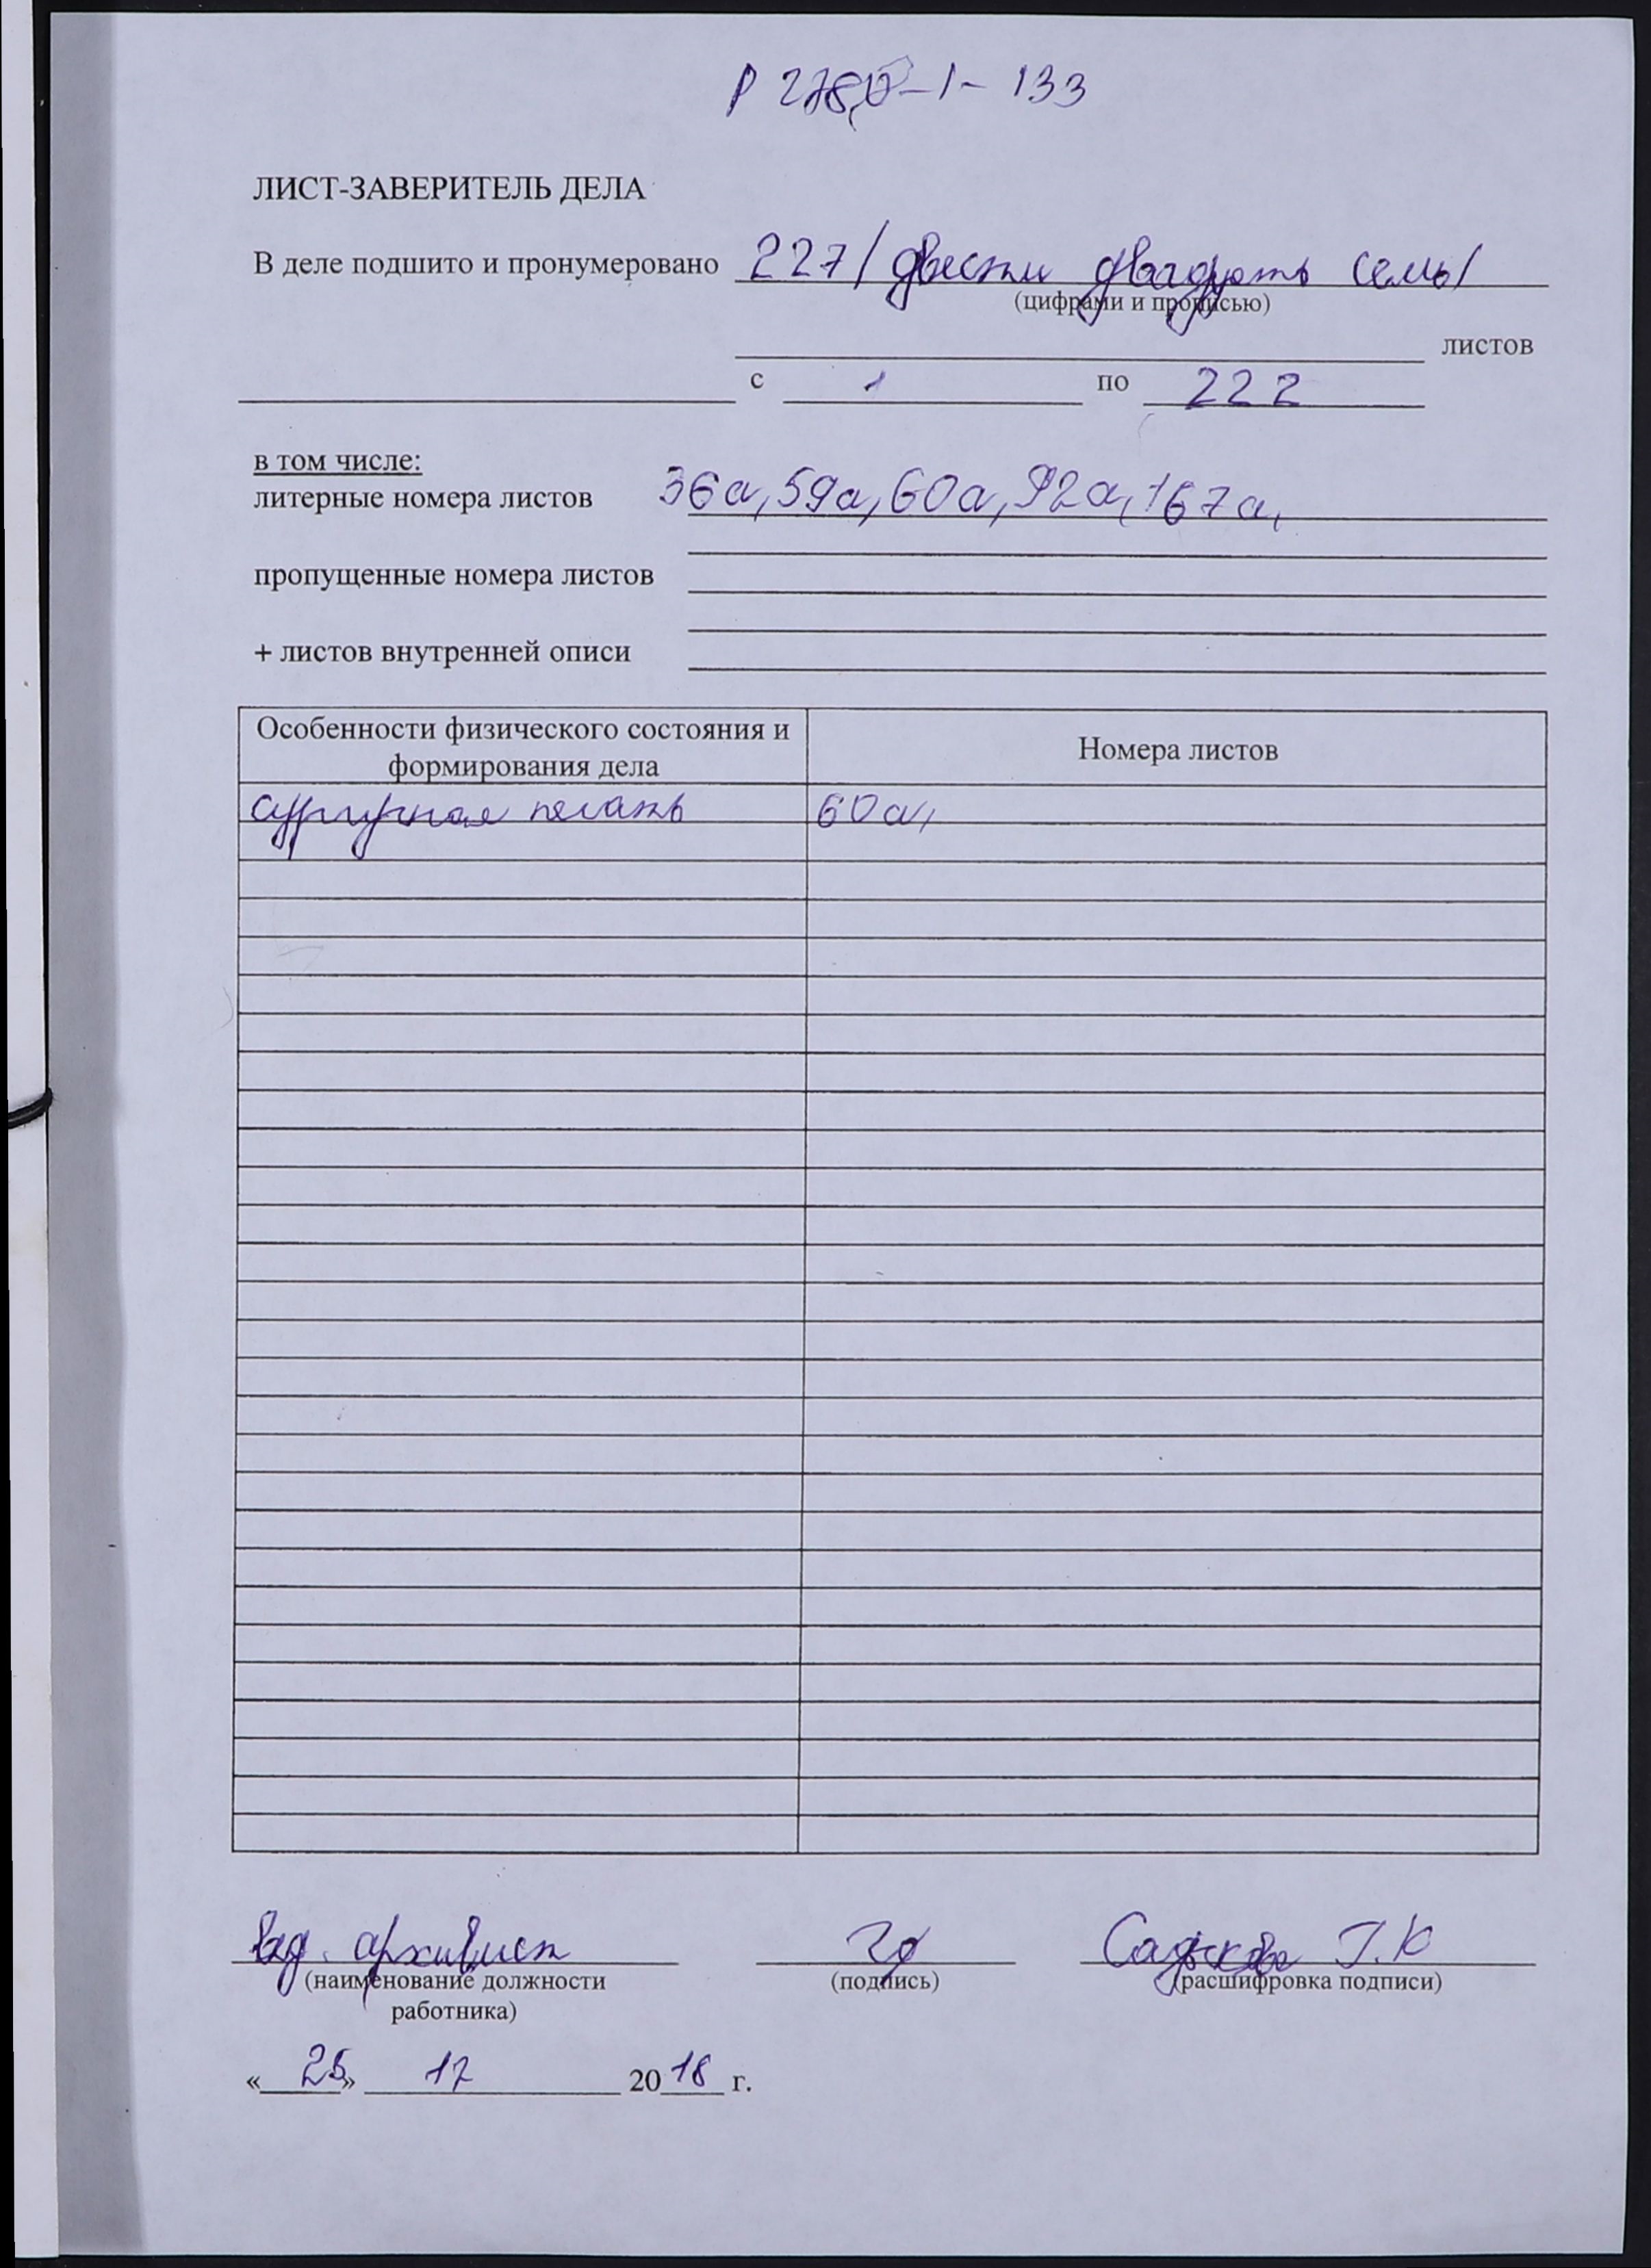 Р 2780-1-133
ЛИСТ-ЗАВЕРИТЕЛЬ ДЕЛА
В деле подшито и пронумеровано 227/двести двадцать семь/
(цифрами и прописью)
листов
с 1 по 222
в том числе:
литерные номера листов 36а, 59а, 60а, 92а, 167а,
пропущенные номера листов
+ листов внутренней описи
Особенности физического состояния и формирования дела Номера листов
сургучная печать 60а,
вед. архивист Садыкова Г.К
(наименование должности (подпись) (расшифровка подписи)
работника)
« 25 » 12 2018 г.